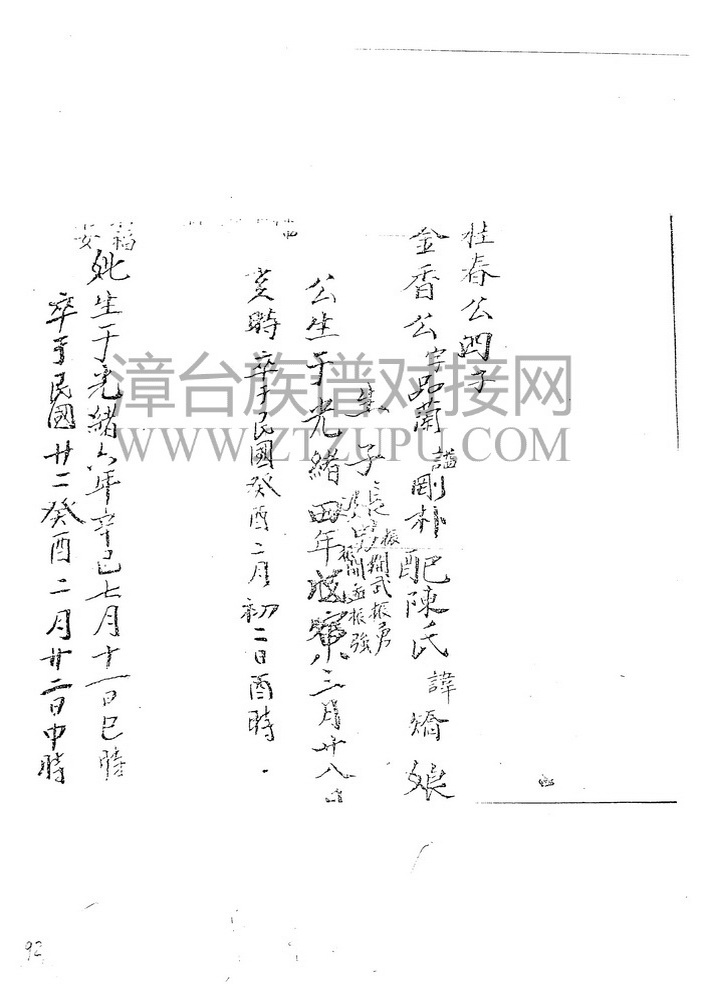 桂春公四子
金香公字品蘭諡剛朴配陳氏諱嬌娘
生子長男振開武振勇
振強
公生于光緒四年戊寅三月廿八日
亥時卒于民國癸酉二月初二日酉時
妣生于光緒六年辛巳七月十一日巳時
卒于民國廿二癸酉二月廿二日申時
福
安
漳台族谱对接网
WWW.ZTZUPU.COM
92